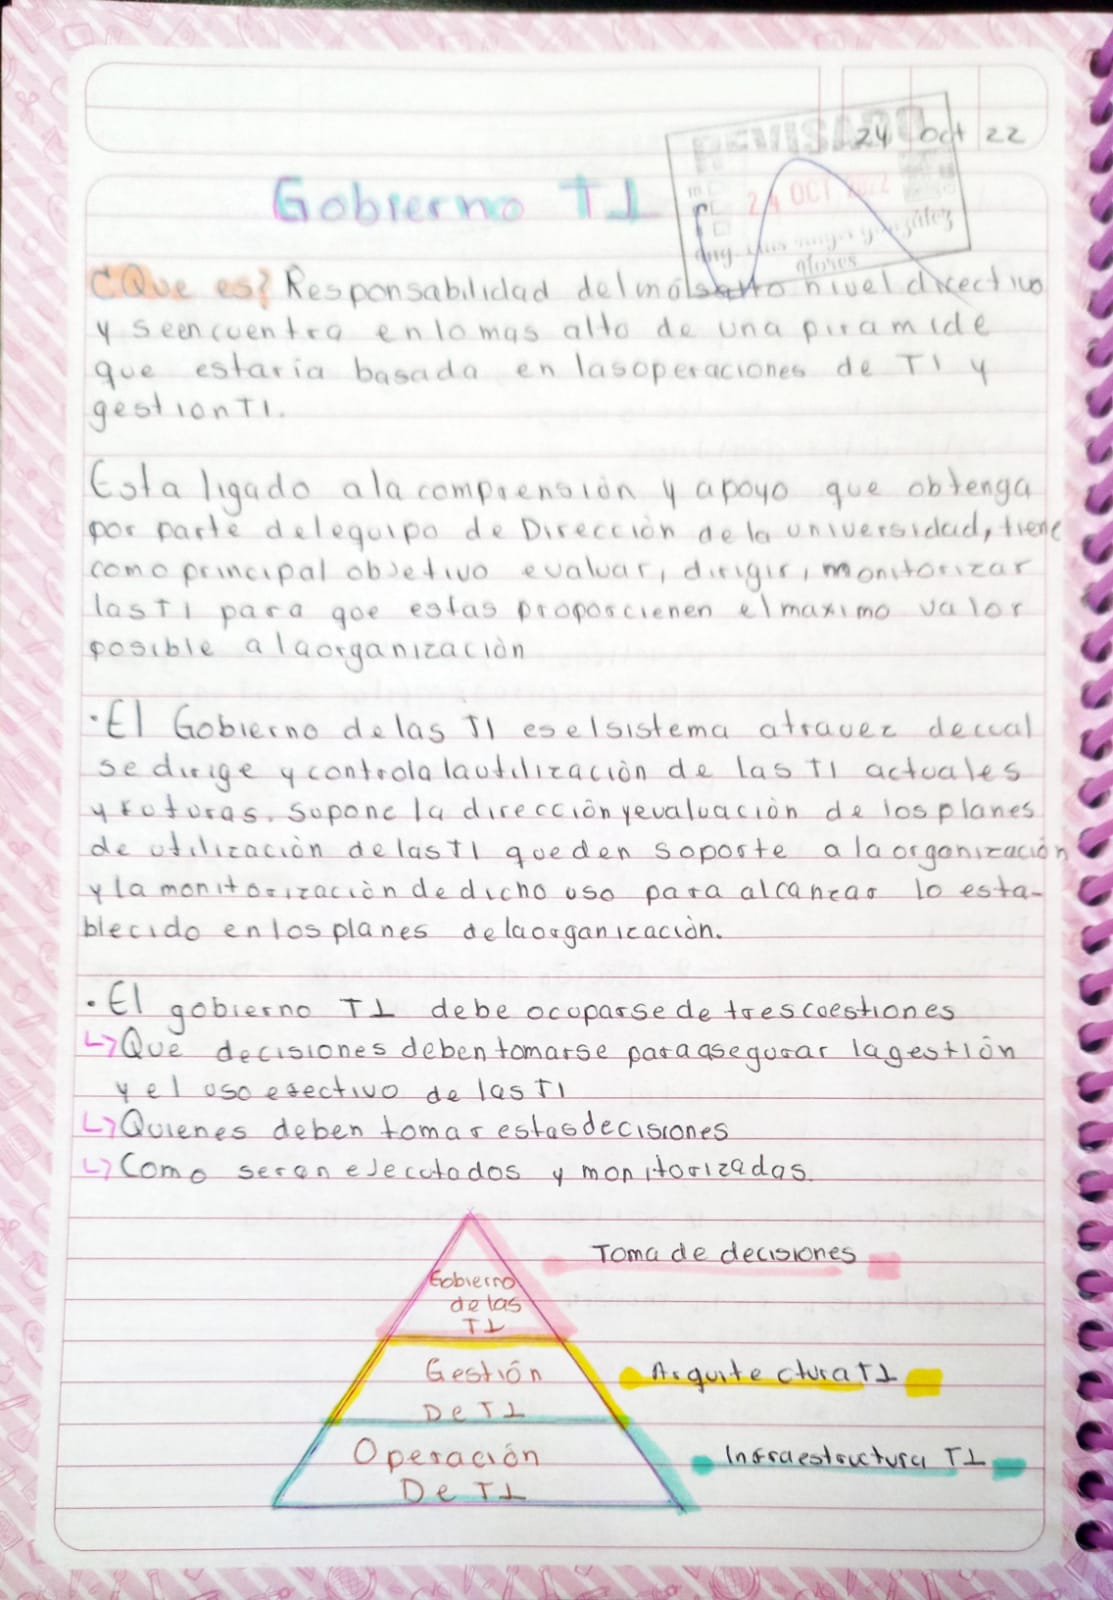 24 Oct 22
REVISADO
24 OCT 2022
Gobierno TI
¿Que es? Responsabilidad del más alto nivel directivo
y se encuentra en lo mas alto de una piramide
que estaría basada en las operaciones de TI y
gestion TI.
Esta ligado a la comprensión y apoyo que obtenga
por parte del equipo de Dirección de la universidad, tiene
como principal objetivo evaluar, dirigir, monitorizar
las TI para que estas proporcienen el maximo valor
posible a la organización
· El Gobierno de las TI es el sistema atravez de cual
se dirige y controla la utilización de las TI actuales
y futuras. Supone la dirección y evaluación de los planes
de utilización de las TI que den soporte a la organización
y la monitorización de dicho uso para alcanzar lo esta-
blecido en los planes de la organización.
· El gobierno TI debe ocuparse de tres cuestiones
↳ Que decisiones deben tomarse para asegurar la gestión
y el uso efectivo de las TI
↳ Quienes deben tomar estas decisiones
↳ Como seran ejecutados y monitorizadas.
Toma de decisiones
Gobierno
de las
TI
Gestión
De TI
Arquitectura TI
Operación
De TI
Infraestructura TI